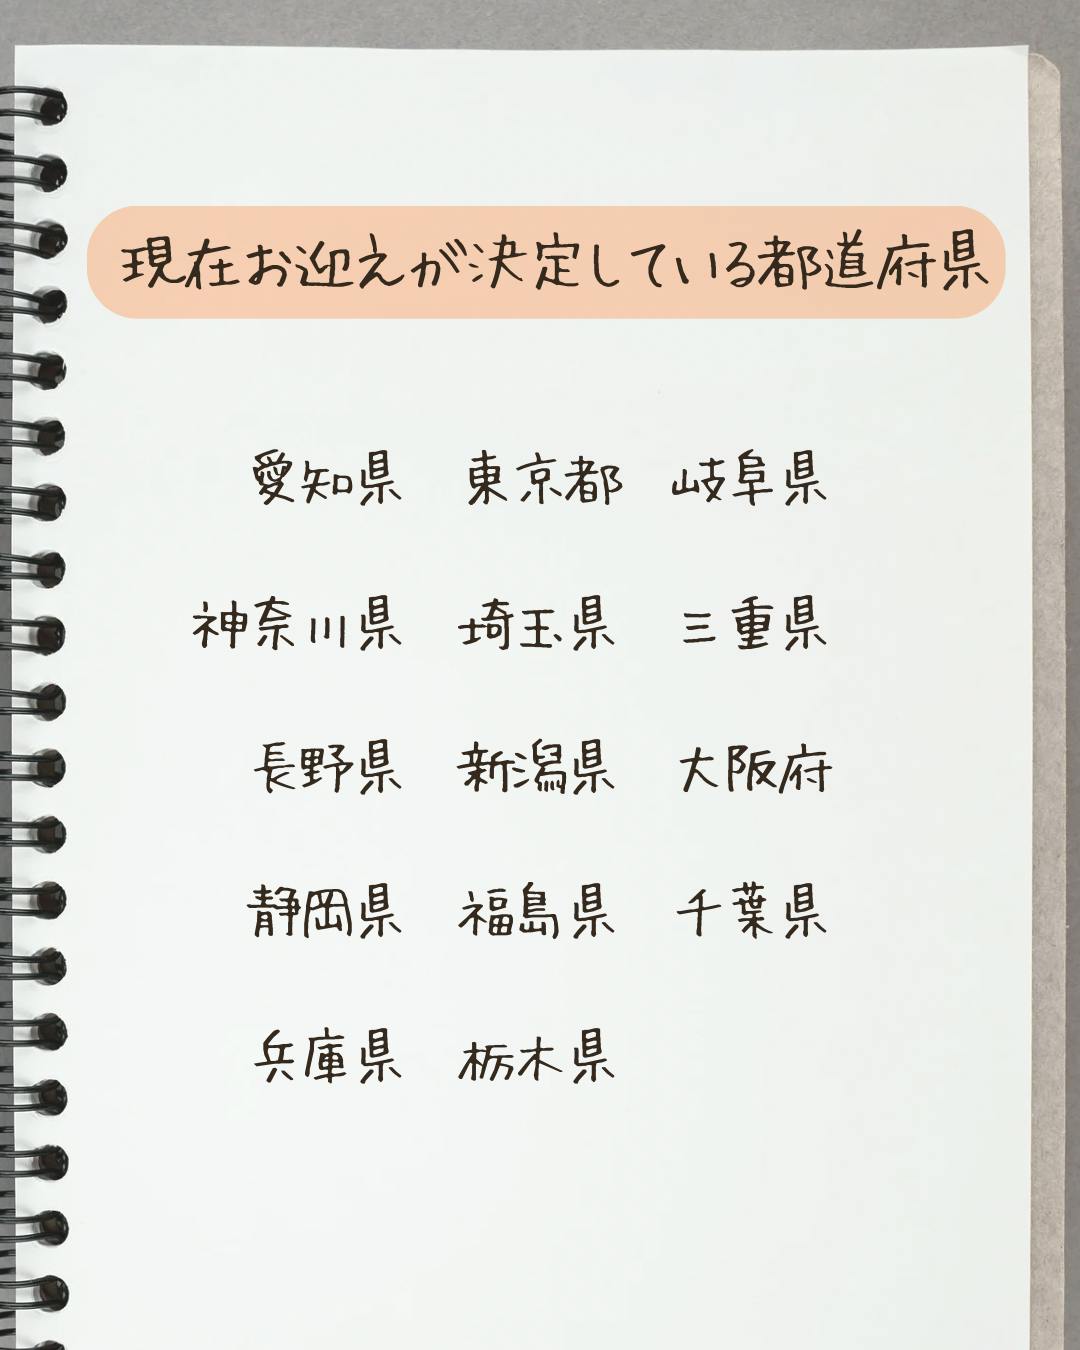 現在お迎えが決定している都道府県
愛知県 東京都 岐阜県
神奈川県 埼玉県 三重県
長野県 新潟県 大阪府
静岡県 福島県 千葉県
兵庫県 栃木県